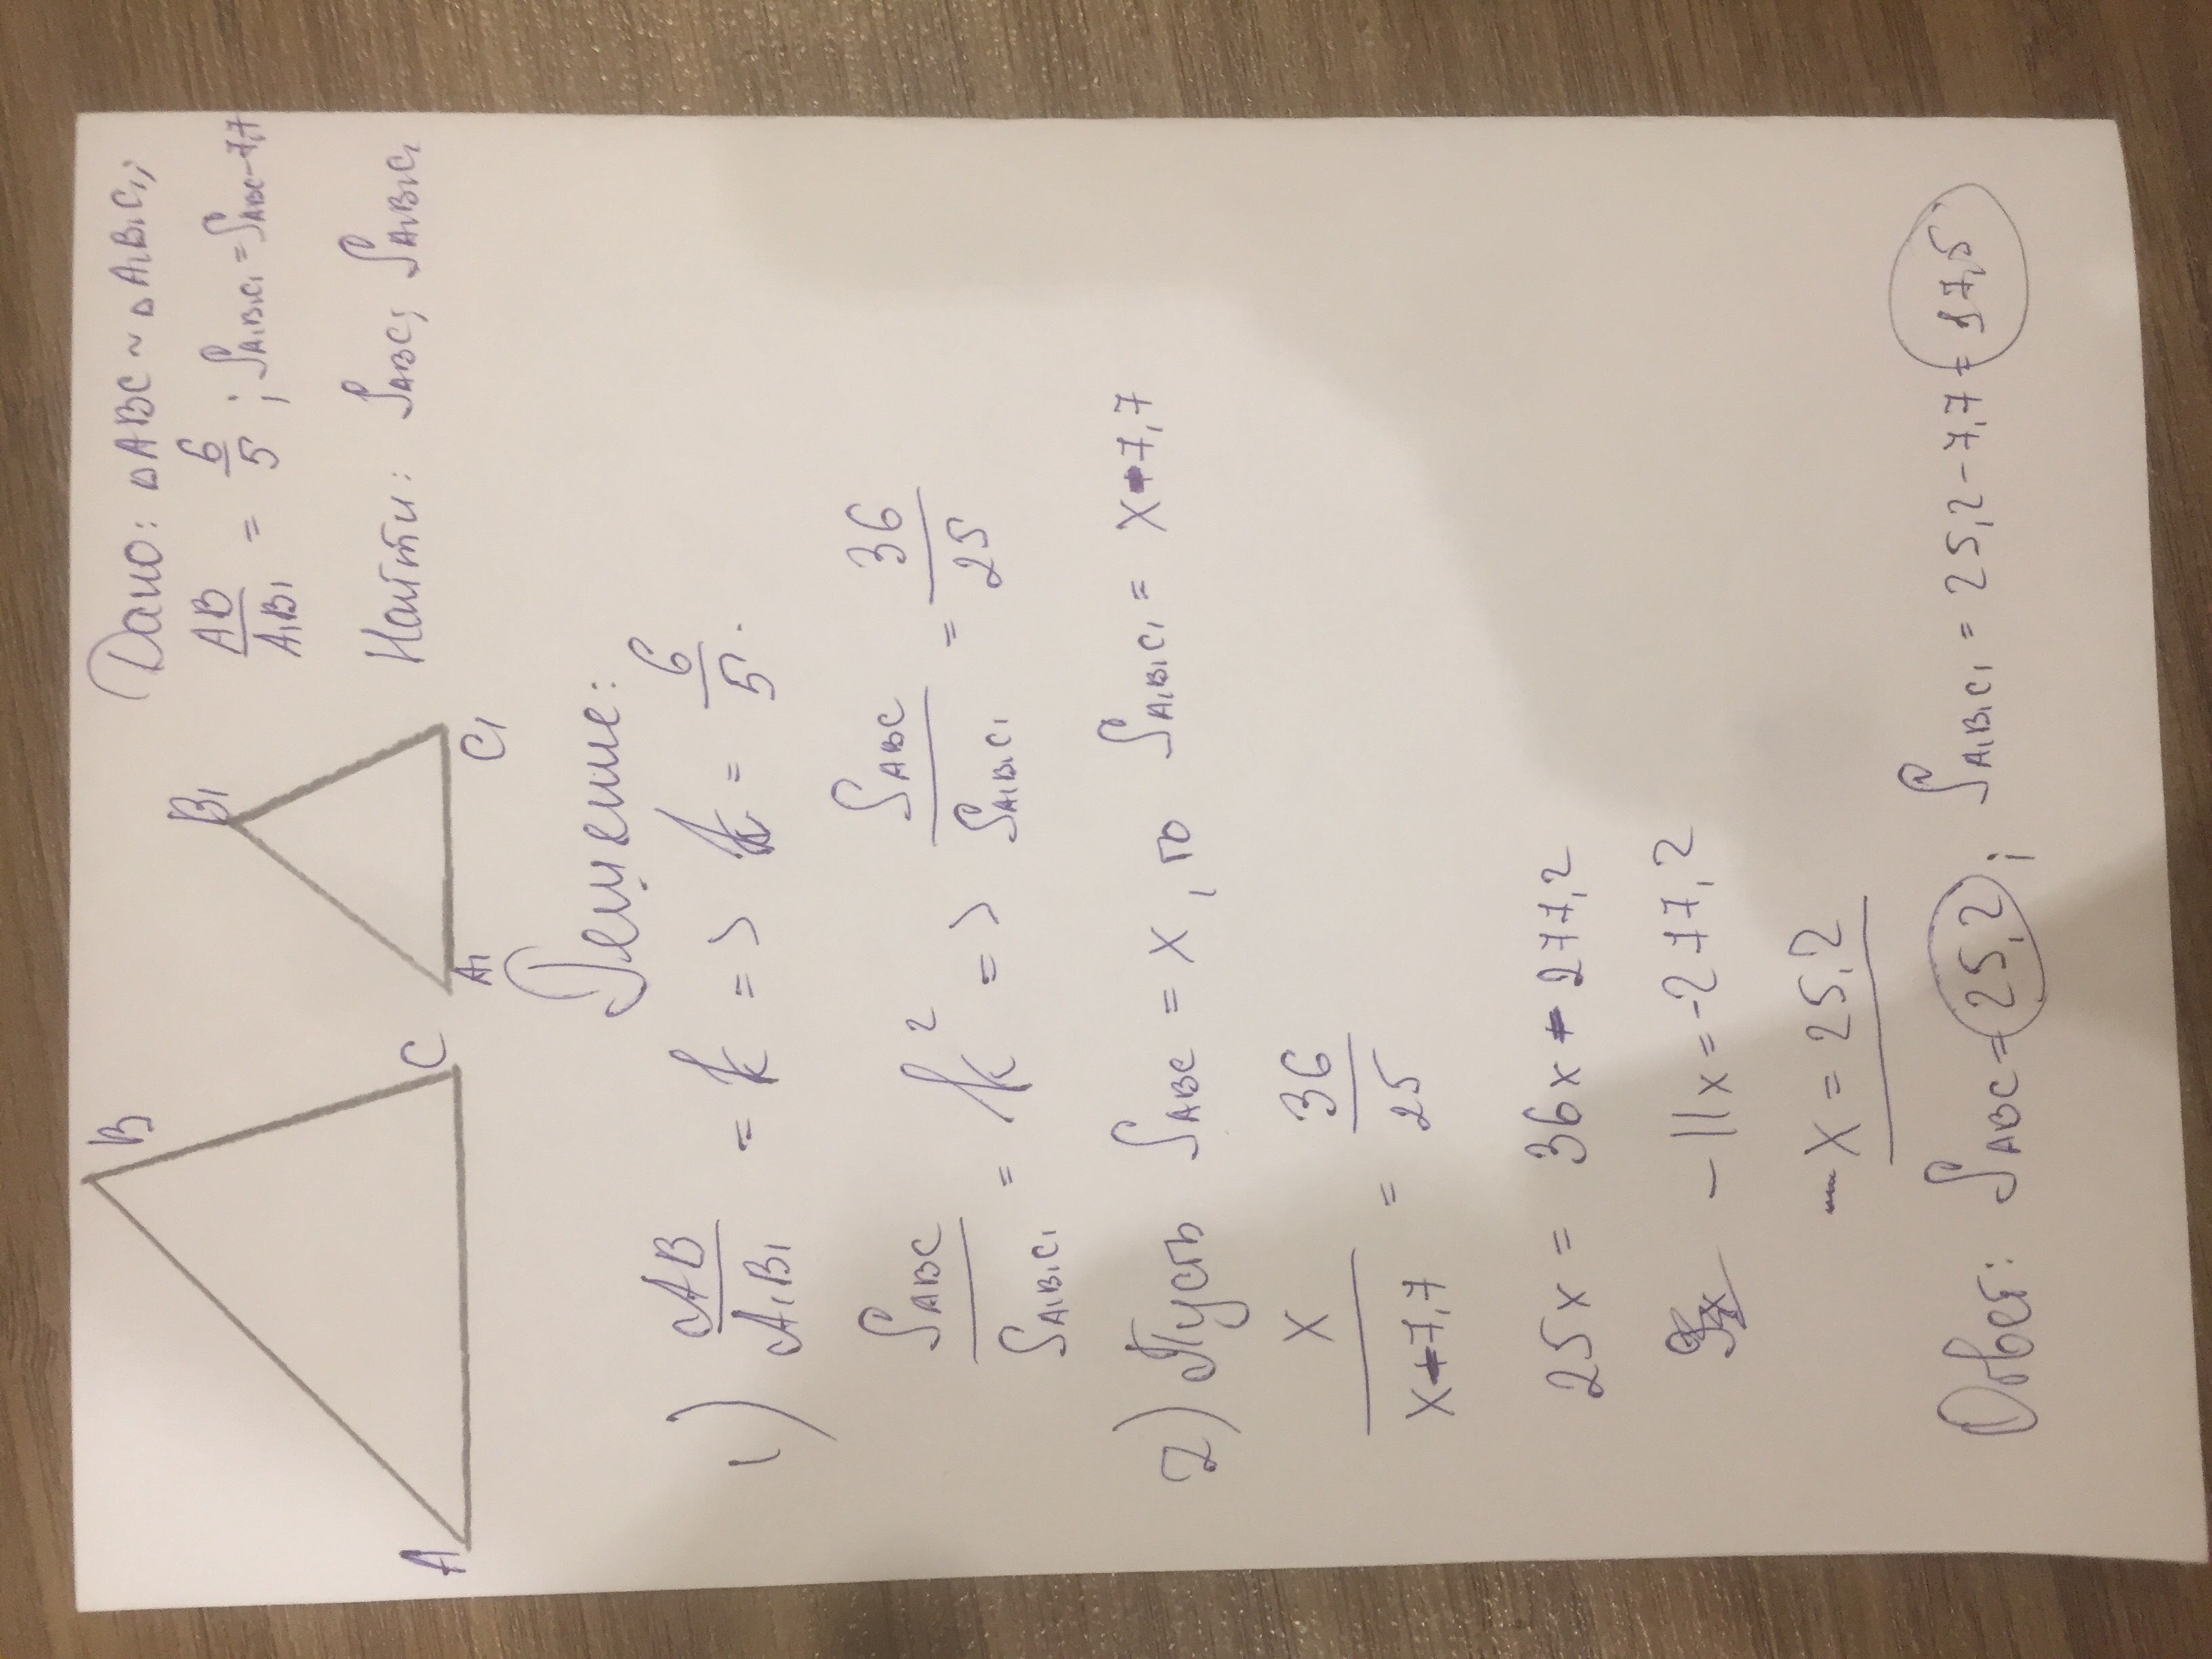 B
A
C
B₁
A₁
C₁
Дано: △ABC ~ △A₁B₁C₁,
AB/A₁B₁ = 6/5; S_A₁B₁C₁ = S_ABC-7,7
Найти: S_ABC; S_A₁B₁C₁
Решение:
1) AB/A₁B₁ = k => k = 6/5.
S_ABC/S_A₁B₁C₁ = k² => S_ABC/S_A₁B₁C₁ = 36/25
2) Пусть S_ABC = x, то S_A₁B₁C₁ = x-7,7
x/x-7,7 = 36/25
25x = 36x - 277,2
-11x = -277,2
x = 25,2
Ответ: S_ABC = 25,2; S_A₁B₁C₁ = 25,2-7,7 = 17,5